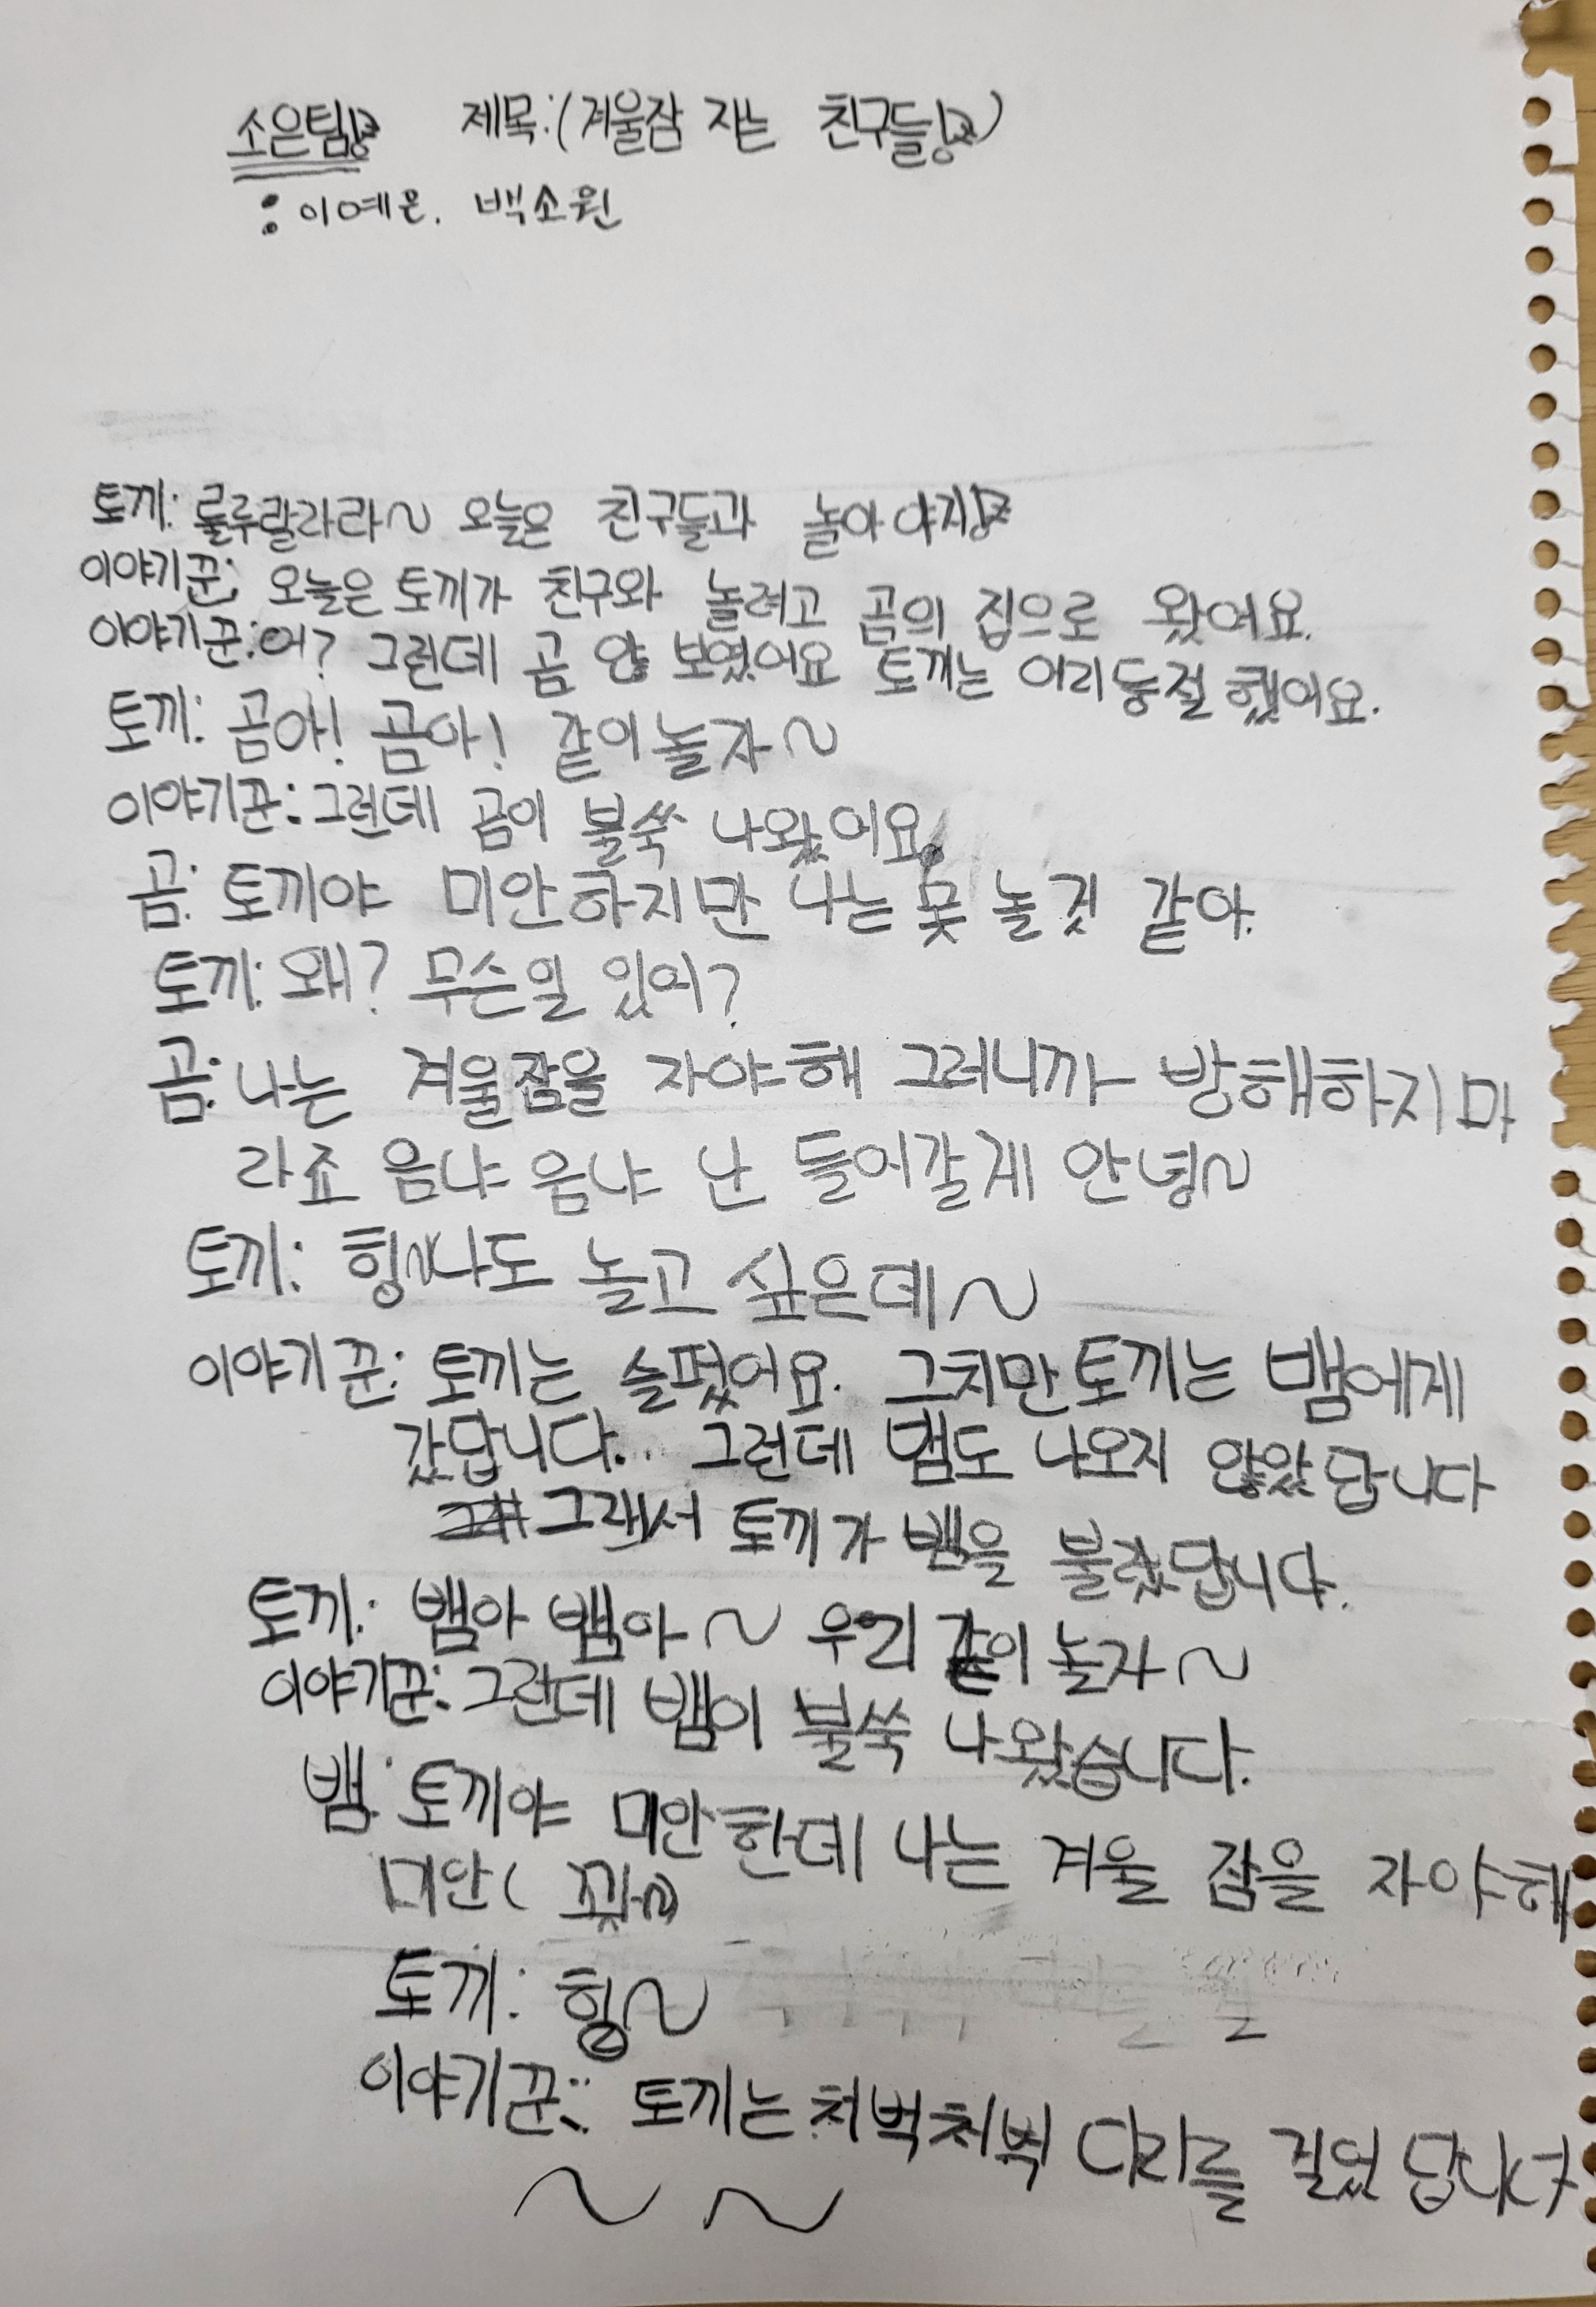 소은팀! 제목:(겨울잠 자는 친구들!)
: 이예은. 백소원
토끼: 룰루랄라라~ 오늘은 친구들과 놀아야지!
이야기꾼: 오늘은 토끼가 친구와 놀려고 곰의 집으로 왔어요.
이야기꾼: 어? 그런데 곰 않 보였어요 토끼는 어리둥절 했어요.
토끼: 곰아! 곰아! 같이 놀자~
이야기꾼: 그런데 곰이 불쑥 나왔어요.
곰: 토끼야 미안하지만 나는 못 놀것 같아.
토끼: 왜? 무슨일 있어?
곰: 나는 겨울잠을 자야해 그러니까 방해하지마
라죠 음냐 음냐 난 들어갈게 안녕~
토끼: 힝~나도 놀고 싶은데~
이야기꾼: 토끼는 슬펐어요. 그치만 토끼는 뱀에게
갔답니다... 그런데 뱀도 나오지 않았답니다
그래서 토끼가 뱀을 불렀답니다.
토끼: 뱀아 뱀아~ 우리 같이 놀자~
이야기꾼: 그런데 뱀이 불쑥 나왔습니다.
뱀: 토끼야 미안한데 나는 겨울 잠을 자야해
미안(
토끼: 힝~
이야기꾼: 토끼는 처벅처벅 다리를 걸었답니다
~ ~